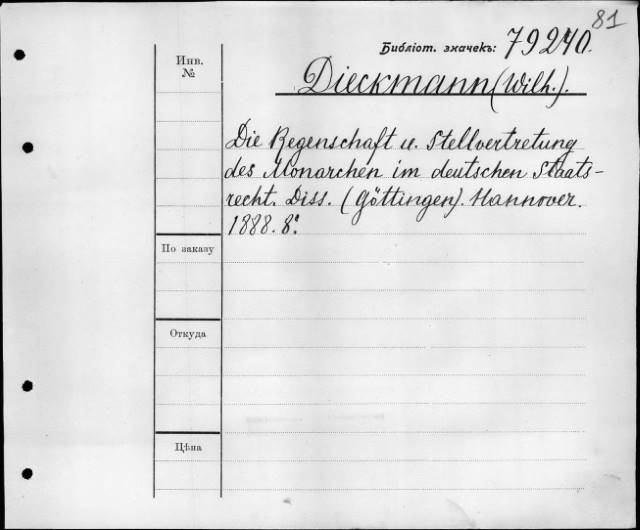 81
Библіот. значекъ: 79240.
Инв.
№
Dieckmann (Wilh.).
Die Regenschaft u. Stellvertretung
des Monarchen im deutschen Staats-
recht. Diss. (Göttingen). Hannover.
1888. 8º.
По заказу
Откуда
Цѣна